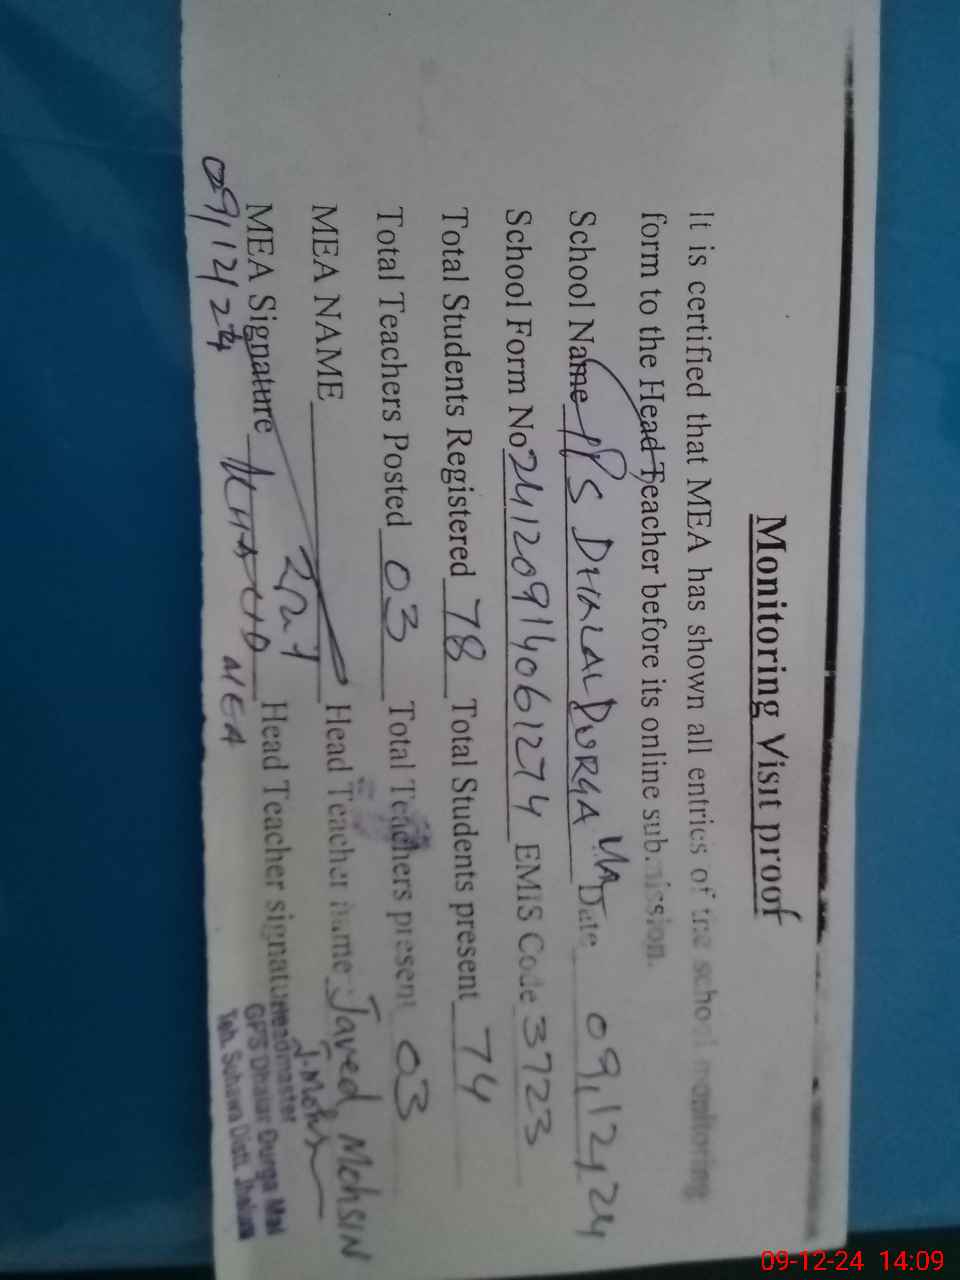 Monitoring Visit proof
It is certified that MEA has shown all entries of the school monitoring
form to the Head Teacher before its online submission.
School Name PS DHALAL DURGA Date 09,12,24
School Form No 24120914061274 EMIS Code 3723
Total Students Registered 78 Total Students present 74
Total Teachers Posted 03 Total Teachers present 03
MEA NAME Head Teacher name: Javed Mohsin
MEA Signature Head Teacher signature J. Mohsin
MEA
09/12/24
Headmaster
GPS Dhalal Durga Mai
Teh. Sohawa Distt. Jhelum
09-12-24 14:09